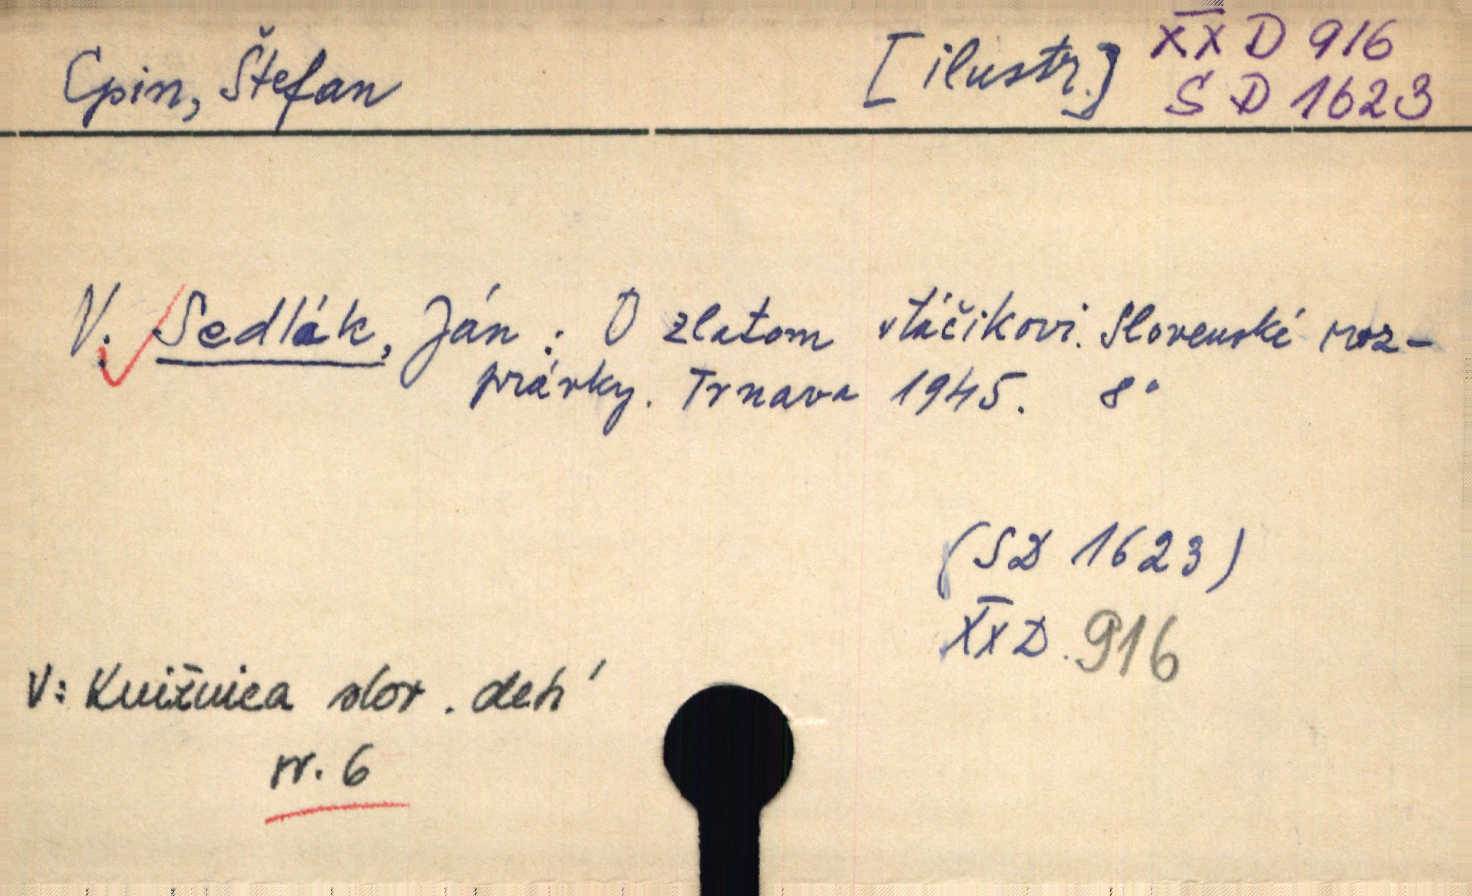 Cpin, Štefan [ilustr.] XX D 916
S D 1623
V. Sedlák, Ján : O zlatom vtáčikovi. Slovenské roz-
právky. Trnava 1945. 8°
(SD 1623)
XX D. 916
V: Knižnica slov. detí
zv. 6